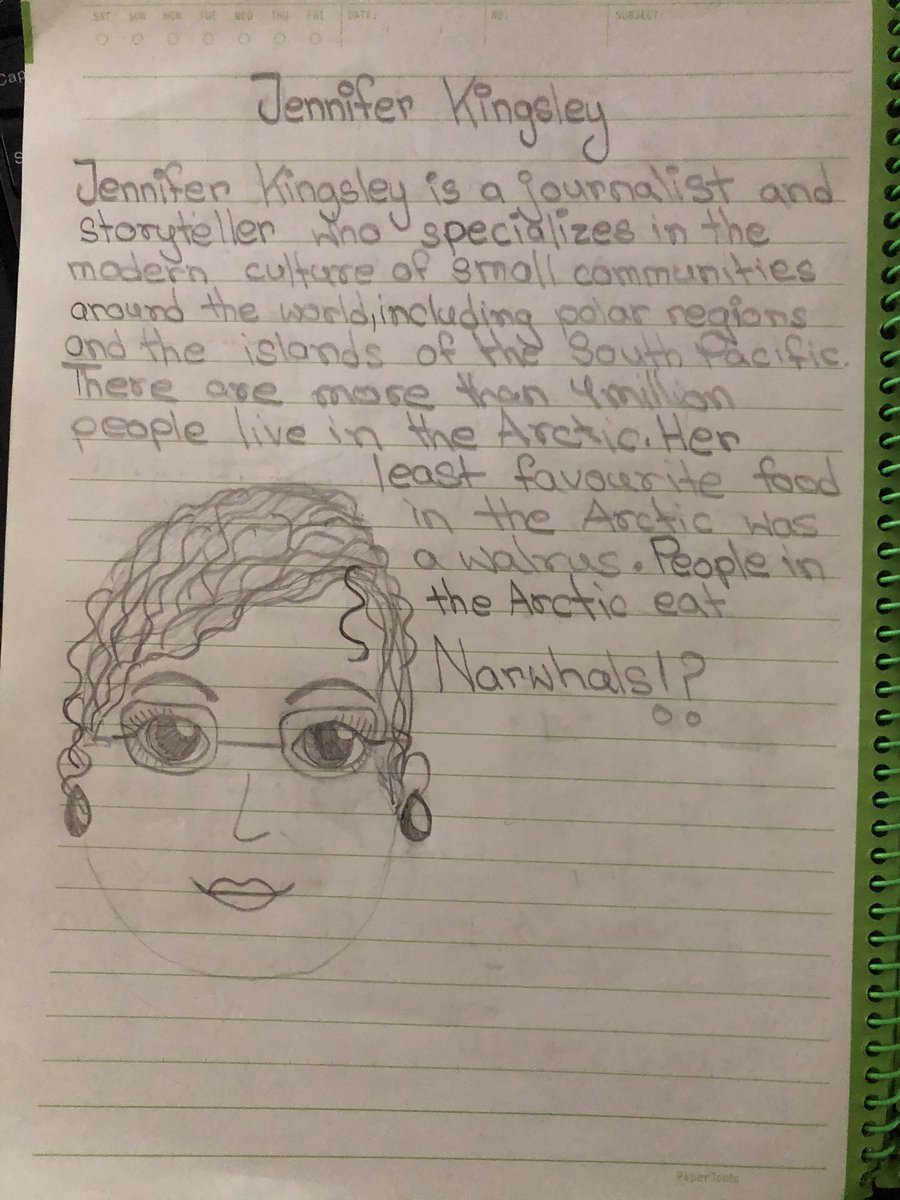 SAT SUN MON TUE WED THU FRI DATE: NO: SUBJECT:
Jennifer Kingsley
Jennifer Kingsley is a journalist and
storyteller who specializes in the
modern culture of small communities
around the world, including polar regions
and the islands of the South Pacific.
There are more than 4 million
people live in the Arctic. Her
least favourite food
in the Arctic was
a walrus. People in
the Arctic eat
Narwhals!?
PaperTools